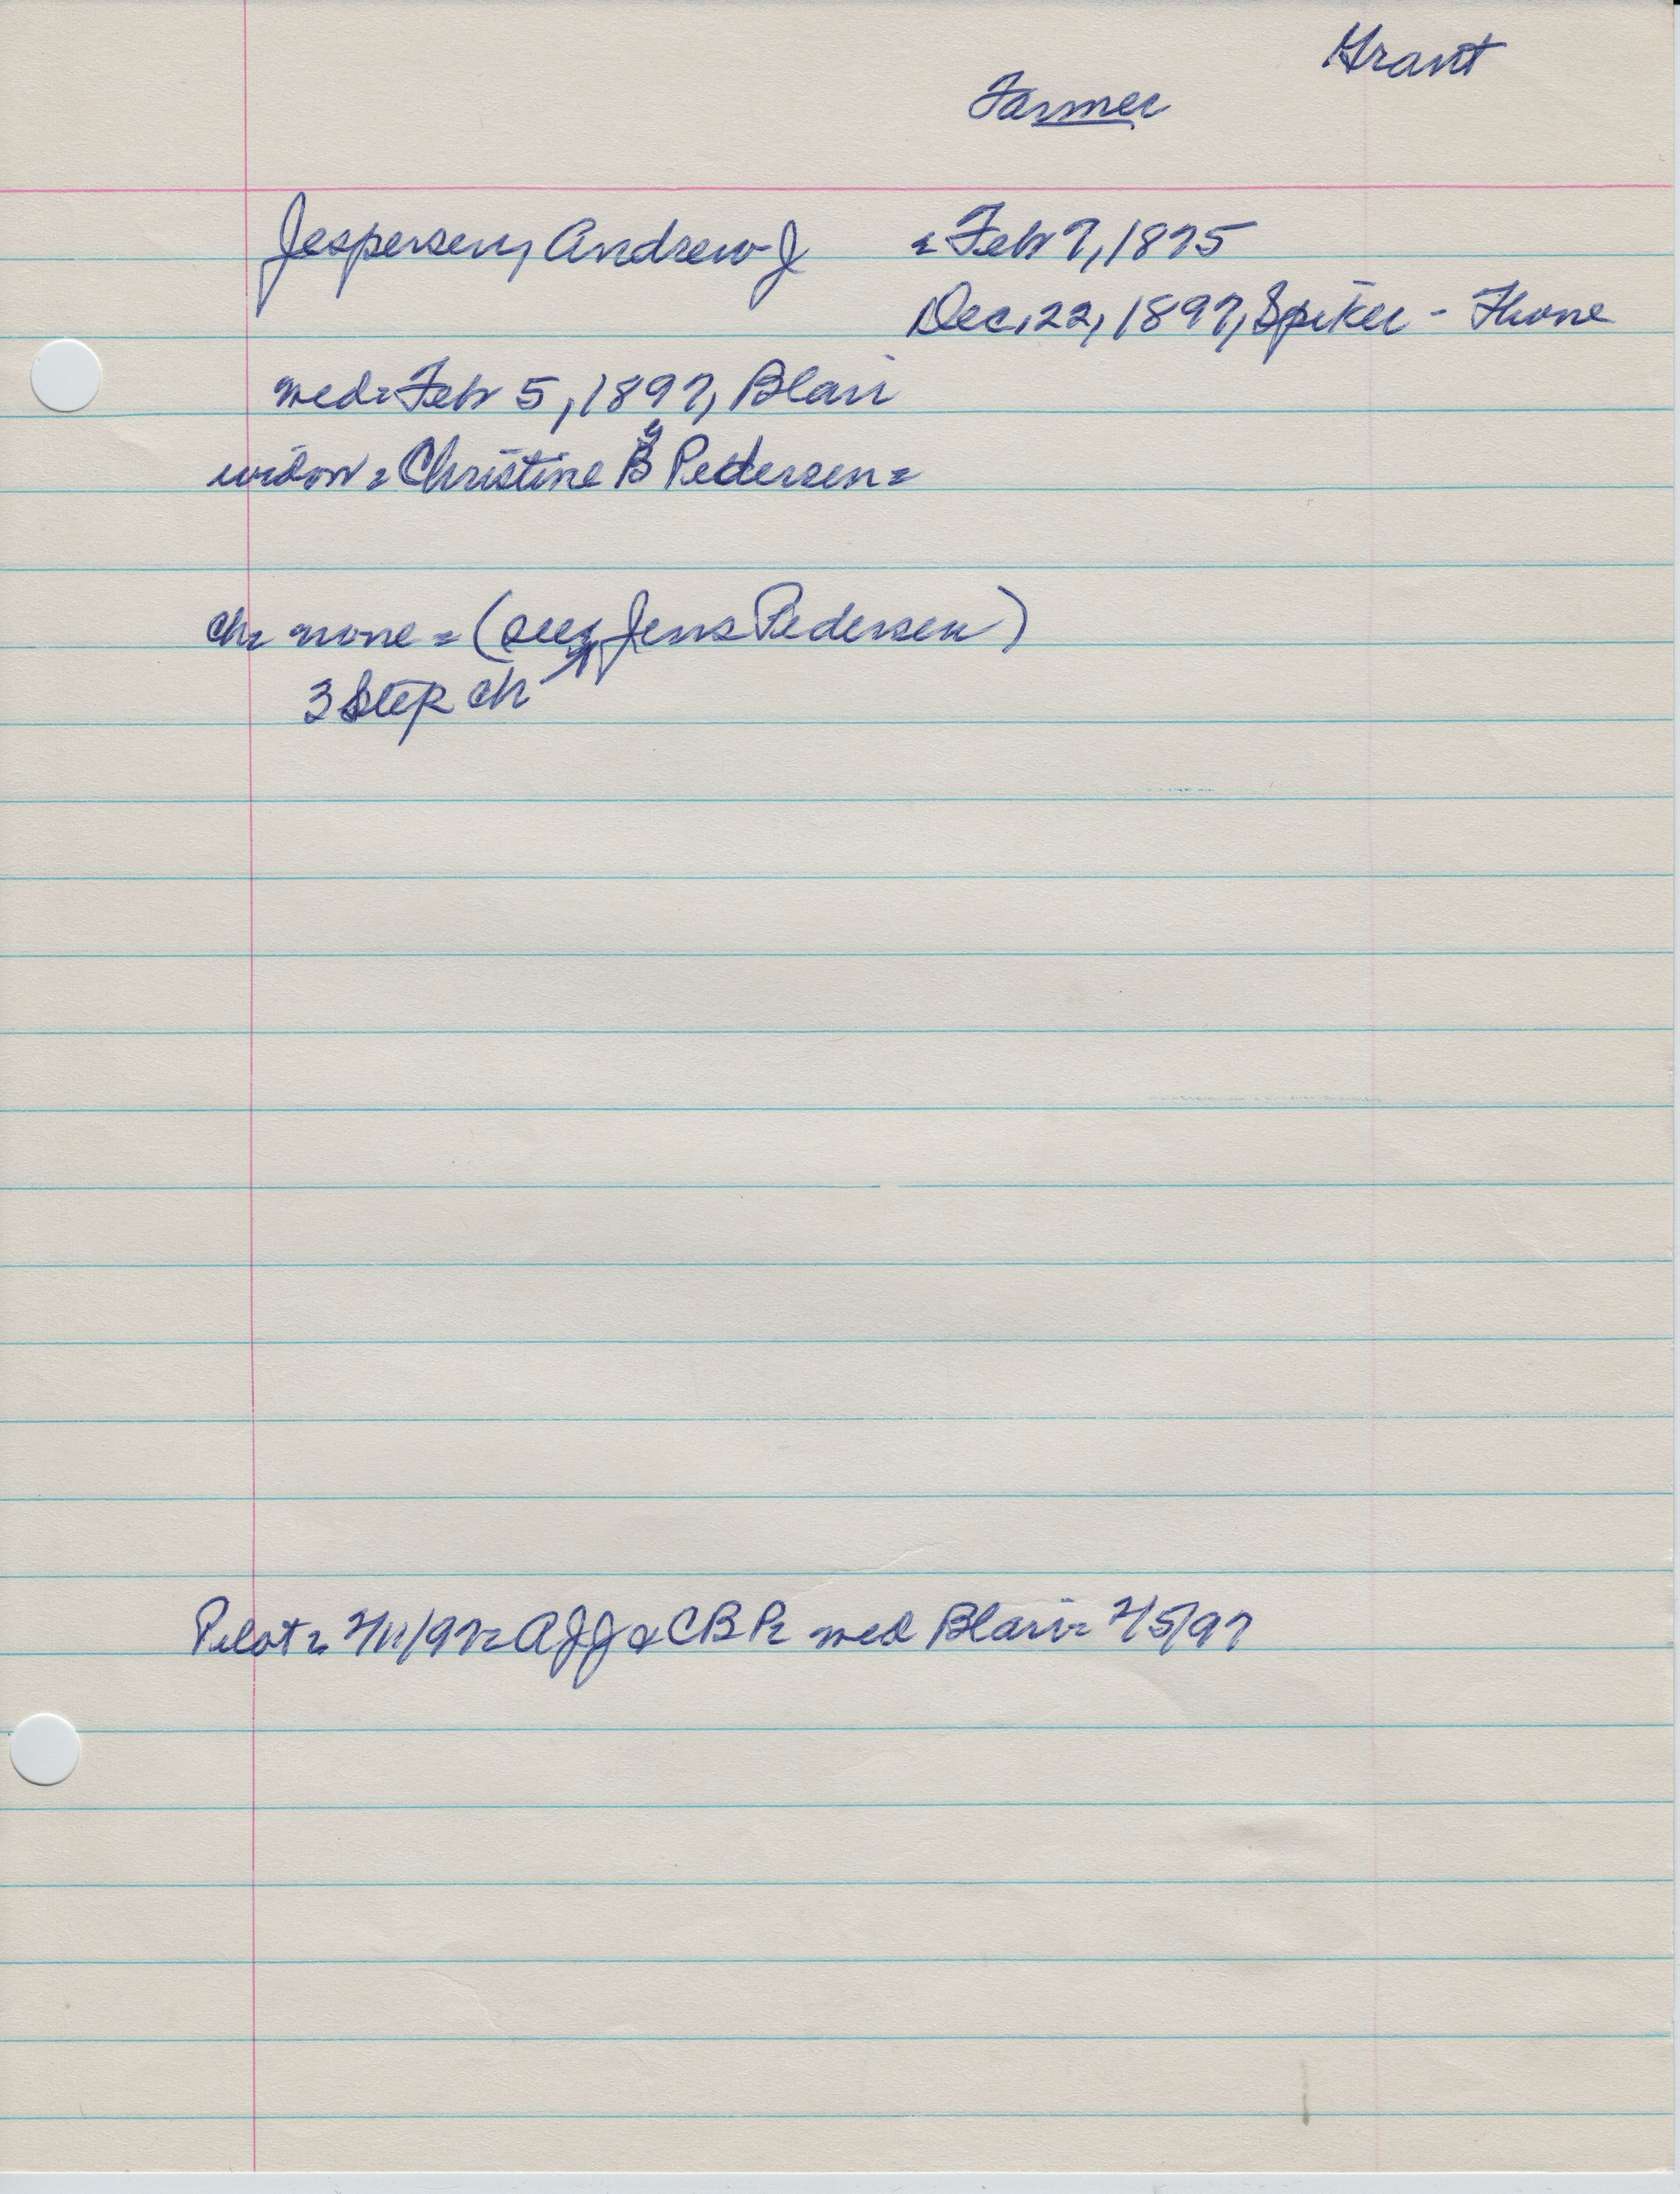 Grant
Farmer
Jespersen, Andrew J = Feb 7, 1875
Dec. 22, 1897, Spiker - Thone
med = Feb 5, 1897, Blair
widow = Christine B Pedersen =
ch = none = (see Jens Pedersen)
3 step ch
Pilot = 2/11/97 = AJJ & CBP = med Blair = 2/5/97